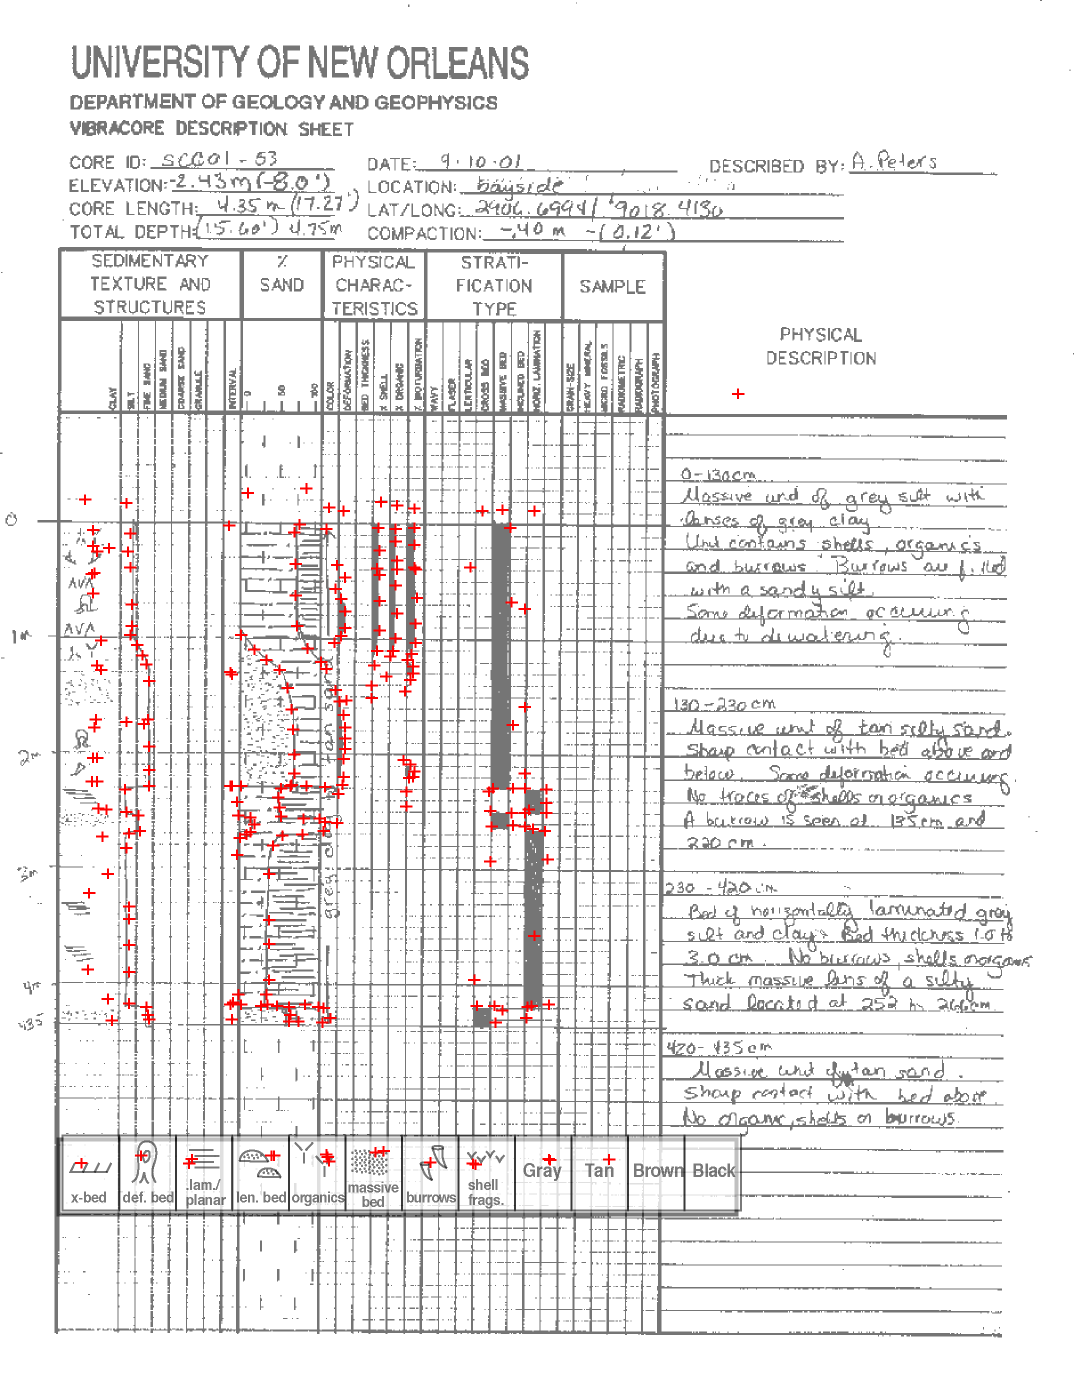 UNIVERSITY OF NEW ORLEANS
DEPARTMENT OF GEOLOGY AND GEOPHYSICS
VIBRACORE DESCRIPTION SHEET
CORE ID: SCC01-53 DATE: 9.10.01 DESCRIBED BY: A. Peters
ELEVATION: -2.43m (-8.0') LOCATION: bayside
CORE LENGTH: 4.35 m (17.27') LAT/LONG: 2906.6994 / 9018.4130
TOTAL DEPTH: (15.60') 4.75m COMPACTION: -.40 m -(0.12')
SEDIMENTARY TEXTURE AND STRUCTURES
% SAND
PHYSICAL CHARAC-TERISTICS
STRATI-FICATION TYPE
SAMPLE
PHYSICAL DESCRIPTION
CLAY
SILT
FINE SAND
MEDIUM SAND
COARSE SAND
GRANULE
INTERVAL
0
50
100
COLOR
DEFORMATION
BED THICKNESS
% SHELL
% ORGANIC
% BIOTURBATION
WAVY
FLASER
LENTICULAR
CROSS BED
MASSIVE BED
INCLINED BED
HORIZ. LAMINATION
GRAIN-SIZE
HEAVY MINERAL
MICRO FOSSILS
RADIOMETRIC
RADIOGRAPH
PHOTOGRAPH
0
1m
2m
3m
4m
435
tan sand
grey clay
0-130cm
Massive unit of grey silt with
lenses of grey clay
Unit contains shells, organics
and burrows. Burrows are filled
with a sandy silt.
Some deformation occuring
due to dewatering.
130-230 cm
Massive unit of tan silty sand.
Sharp contact with bed above and
below. Some deformation occuring.
No traces of shells or organics
A burrow is seen at 135cm and
220 cm.
230 - 420 cm
Bed of horizontally laminated grey
silt and clay. Bed thickness 1.0 to
3.0 cm. No burrows, shells or organics
Thick massive lens of a silty
sand located at 252 to 266cm
420-435cm
Massive unit of tan sand.
Sharp contact with bed above.
No organic, shells or burrows.
x-bed
def. bed
.lam./ planar
len. bed
organics
massive bed
burrows
shell frags.
Gray
Tan
Brown
Black